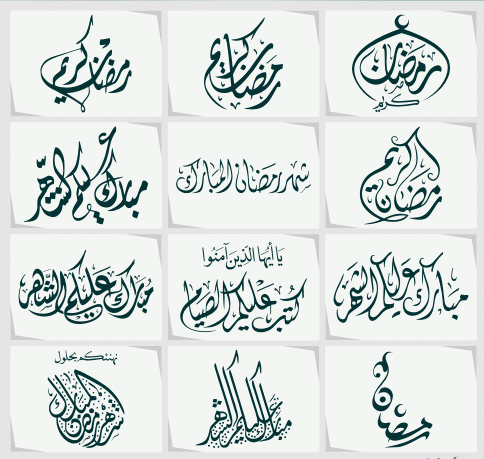 رمضان كريم
رمضان كريم
رمضان
كريم
مبارك عليكم الشهر
شهر رمضان المبارك
رمضان كريم
مبارك عليكم الشهر
يا أيها الذين آمنوا
كتب عليكم الصيام
مبارك عليكم الشهر
نهنئكم بحلول
شهر رمضان المبارك
مبارك عليكم الشهر
رمضان